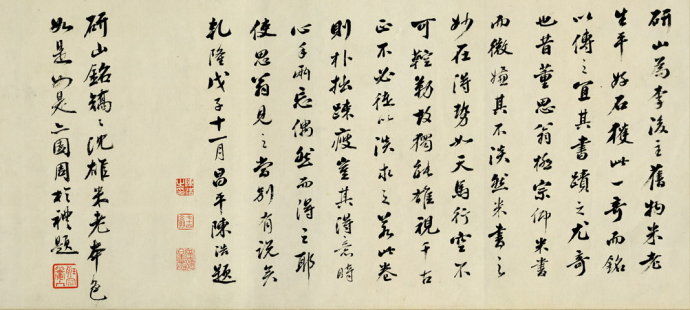 研山為李後主舊物米老
生平好石獲此一奇而銘
以傳之宜其書蹟之尤奇
也昔董思翁極宗仰米書
而微嫌其不淡然米書之
妙在得勢如天馬行空不
可羈勒故獨能雄視千古
正不必徒以淡求之若此卷
則朴拙疎瘦豈其得意時
心手兩忘偶然而得之耶
使思翁見之當別有說矣
乾隆戊子十一月昌平陳浩題
研山銘鐫之沈雄米老本色
如是如是 周於禮題